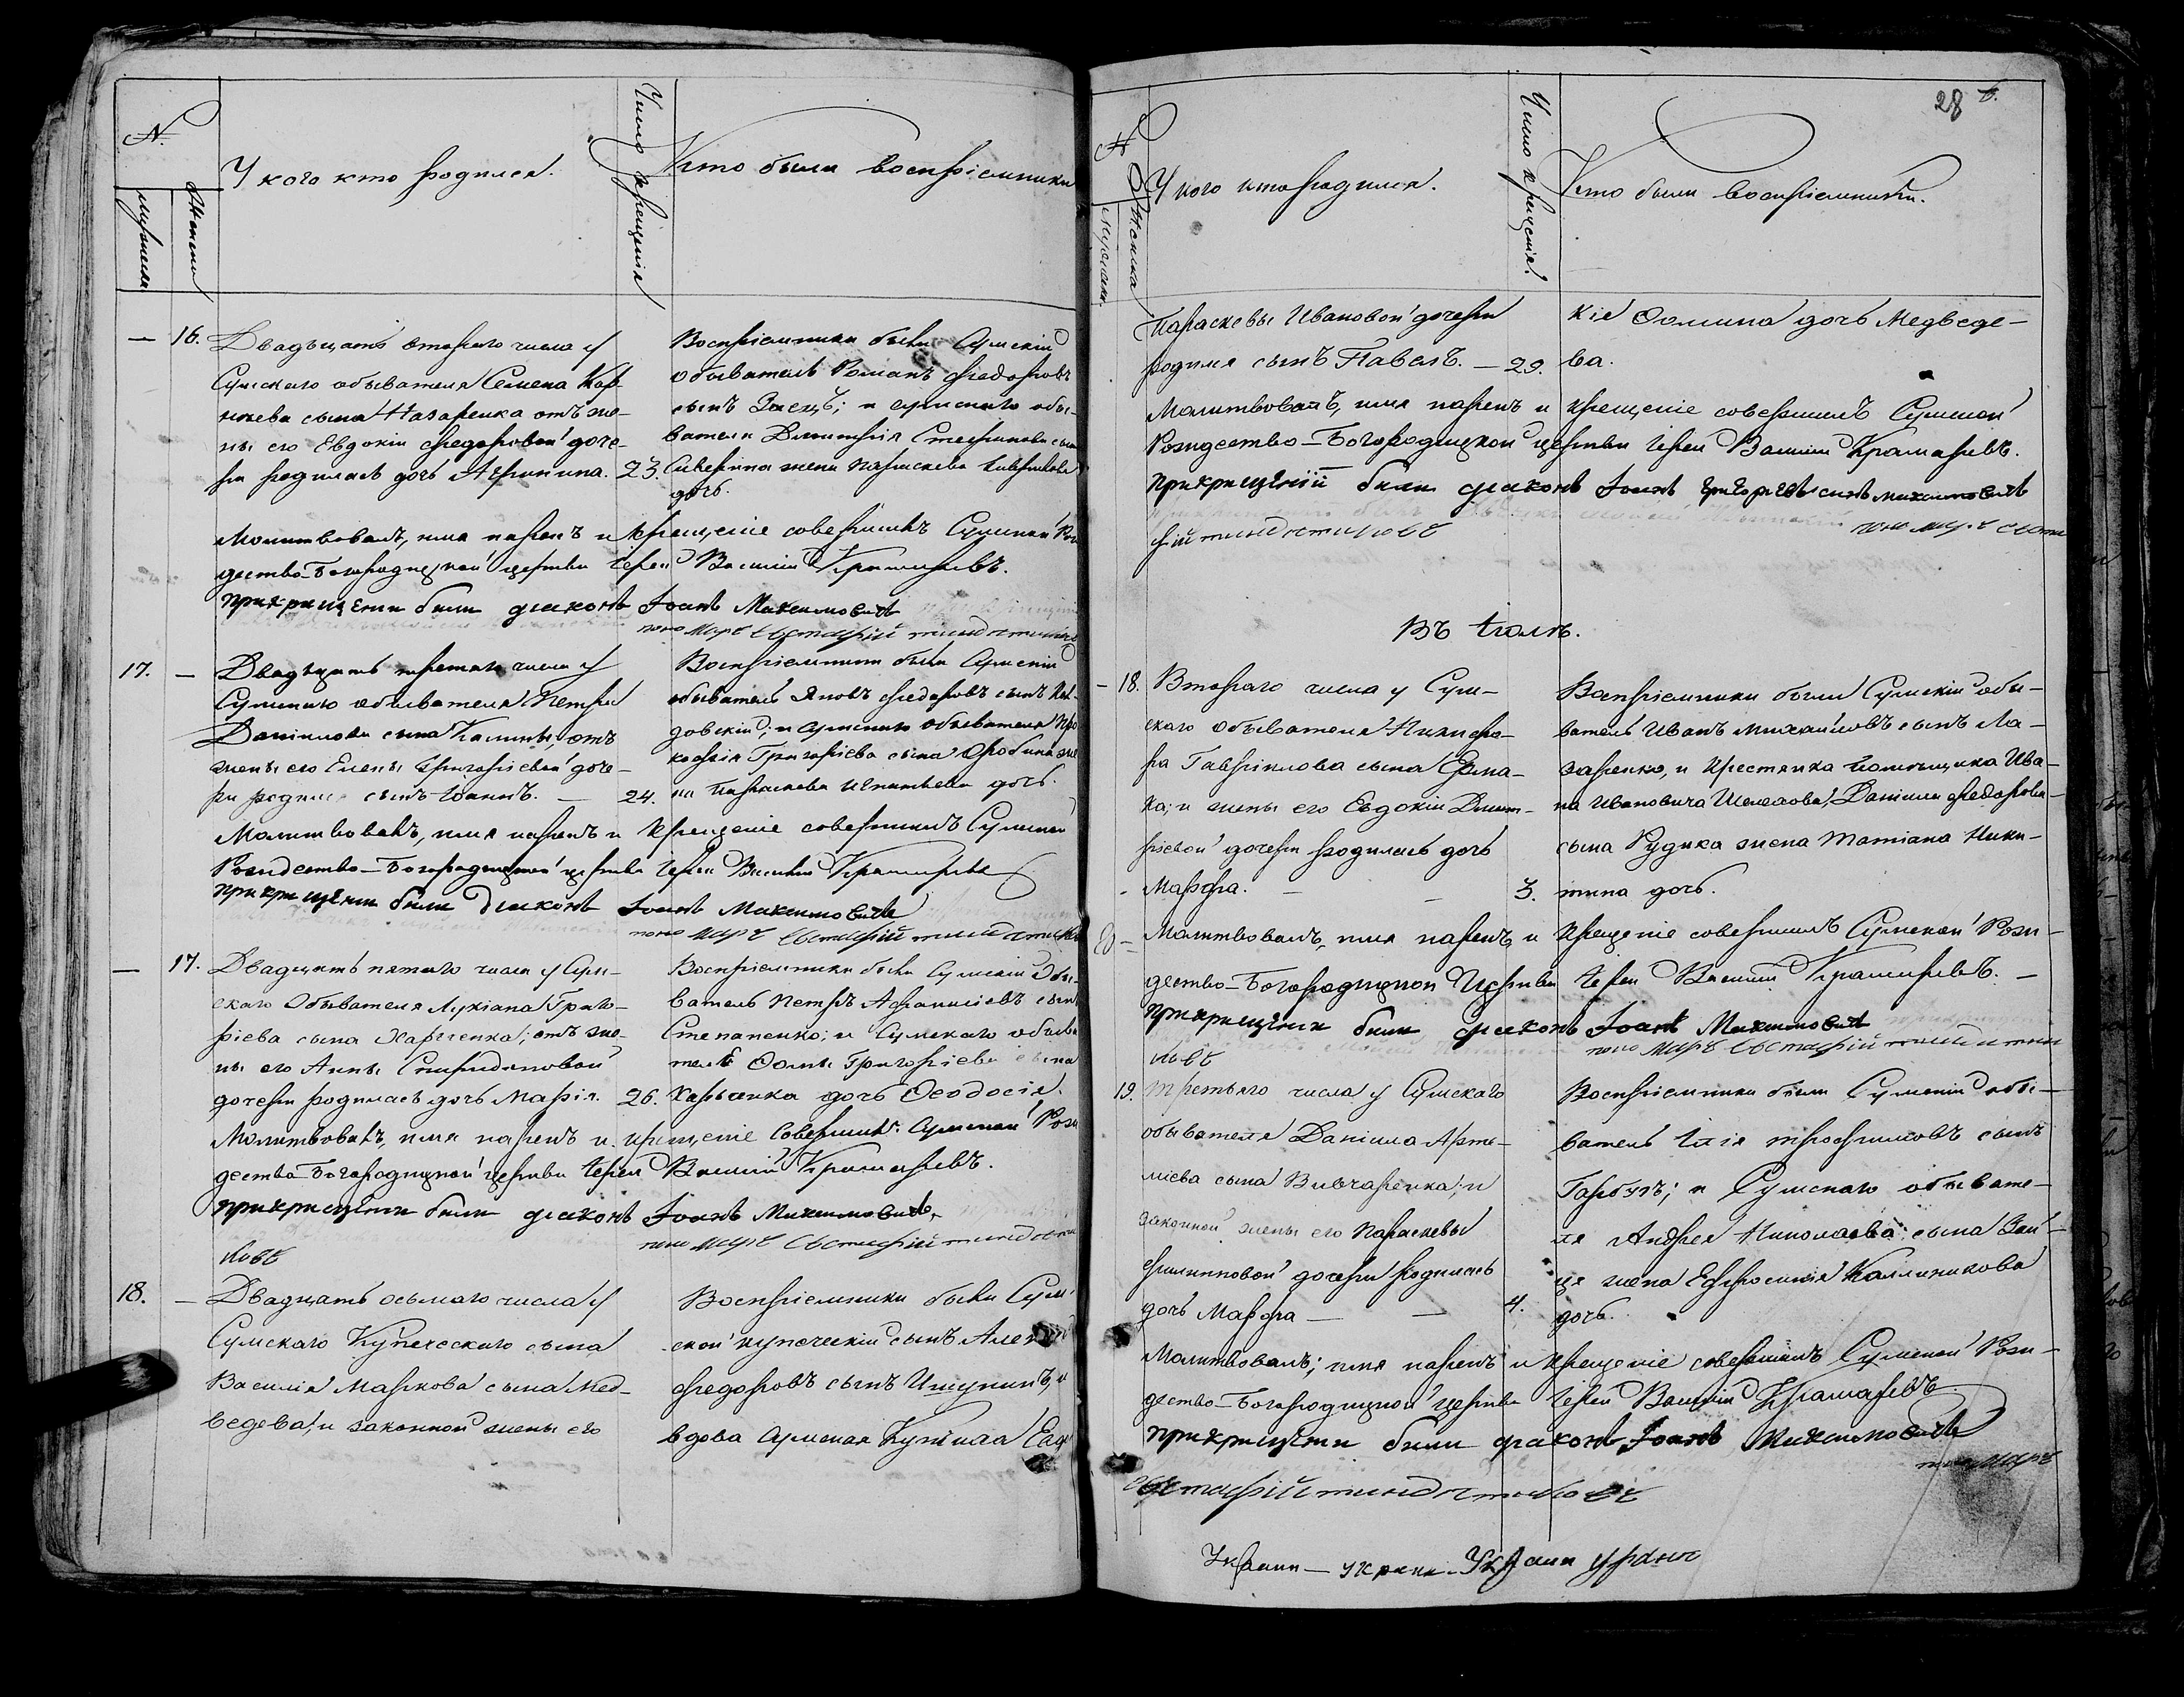 N.
Мужеска
Женска
У кого кто родился.
Число крещения
Кто были восприемники
16. Двадцать втораго числа у
Сумскаго обывателя Семена Кор-
нѣева сына Назаренка отъ же-
ны его Евдокіи Федоровой доче-
ри родилась дочь Агрипина. 23.
Воспріемники были Сумскій
обыватель Романъ Федоровъ
сынъ Заецъ; и сумскаго обы-
вателя Димитрія Стефанова сына
жена Параскева
дочь.
Молитвовалъ, имя нарекъ и крещеніе совершилъ Сумской Рож
дество-Богородицкой церкви Іерей Василій Крамаревъ.
при крищении были диаконъ Іоанъ Максимовичъ
поно марь Евстафій
17. Двадцать третяго числа у
Сумскаго обывателя Петра
Даніилова сына Калины, отъ
жены его Елены Григоріевой доче-
ри родился сынъ Іоаннъ. — 24.
Воспріемники были Сумскій
обыватель Яковъ Федоровъ сынъ
довскій; и сумскаго обывателя Про
кофія Григоріева сына же
на Параскева Игнатьева дочь.
Молитвовалъ, имя нарекъ и крещеніе совершилъ Сумской
Рождество-Богородицкой церкви Іерей Василій Крамаревъ
при крищении были Диаконъ Іоанъ Максимовичъ
поно марь Евстафій
17. Двадцать пятаго числа у Сум-
скаго Обывателя Лукіана Григо-
ріева сына Харченка; отъ же-
ны его Анны Спиридоновой
дочери родилась дочь Марія. 26.
Воспріемники были Сумскій Обы-
ватель Петръ Афанасіевъ сынъ
Степаненко; и Сумскаго обыва
теля Ѳомы Григоріева сына
Харченка дочь Ѳеодосія.
Молитвовалъ, имя нарекъ и крещеніе совершилъ Сумской Рож
дество-Богородицкой церкви Іерей Василій Крамаревъ.
при крищении были диаконъ Іоанъ Максимовичъ
поно марь Евстафій
ковъ
18. Двадцать осьмаго числа у
Сумскаго Купеческаго сына
Василія Маркова сына Мед-
ведева, и законной жены его
Воспріемники были Сум-
ской купеческій сынъ
Федоровъ сынъ и
вдова сумская
28
N
Мужеска
Женска
У кого кто родился.
Число крещенія.
Кто были воспріемники.
Параскевы Ивановой дочери
родился сынъ Павелъ. — 29.
кія Ѳомина дочь Медведе-
ва.
Молитвовалъ, имя нарекъ и крещеніе совершилъ Сумской
Рождество-Богородицкой церкви Іерей Василій Крамаревъ.
при крищении были диаконъ Іоанъ Григориевъ синъ Максимовичъ
поно марь Евста
фій
Въ Іюлѣ.
18. Втораго числа у Сум-
скаго Обывателя Никифо-
ра Гавріилова сына Ерма-
ка; и жены его Евдокіи Димит-
ріевой дочери родилась дочь
Марфа. — 3.
Воспріемники были Сумскій обы-
ватель Иванъ Михайловъ сынъ Ла-
заренко, и крестянка помѣщика Ива-
на Ивановича Даніила Федорова
сына Рудика жена Татіана Ники-
тина дочь.
Молитвовалъ, имя нарекъ и крещеніе совершилъ Сумской Рож-
дество-Богородицкой Церкви Іерей Василій Крамаревъ. —
при крищении были диаконъ Іоанъ Максимовичъ
поно марь Евстафій
ковъ
19. Третьяго числа у Сумскаго
обывателя Даніила Арте-
міева сына Вивчаренка; и
законной жены его Параскевы
Филиповой дочери родилась
дочь Марфа — 4.
Воспріемники были Сумскій обы-
ватель Илія Трофимовъ сынъ
Гарбузъ; и Сумскаго обывате-
ля Андрея Николаева сына Зай-
ца жена Ефросинія Калиникова
дочь.
Молитвовалъ; имя нарекъ и крещеніе совершилъ Сумской Рож-
дество-Богородицкой церкви Іерей Василій Крамаревъ
при крищении были диаконъ Іоанъ Максимовичъ
поно марь
Евстафій